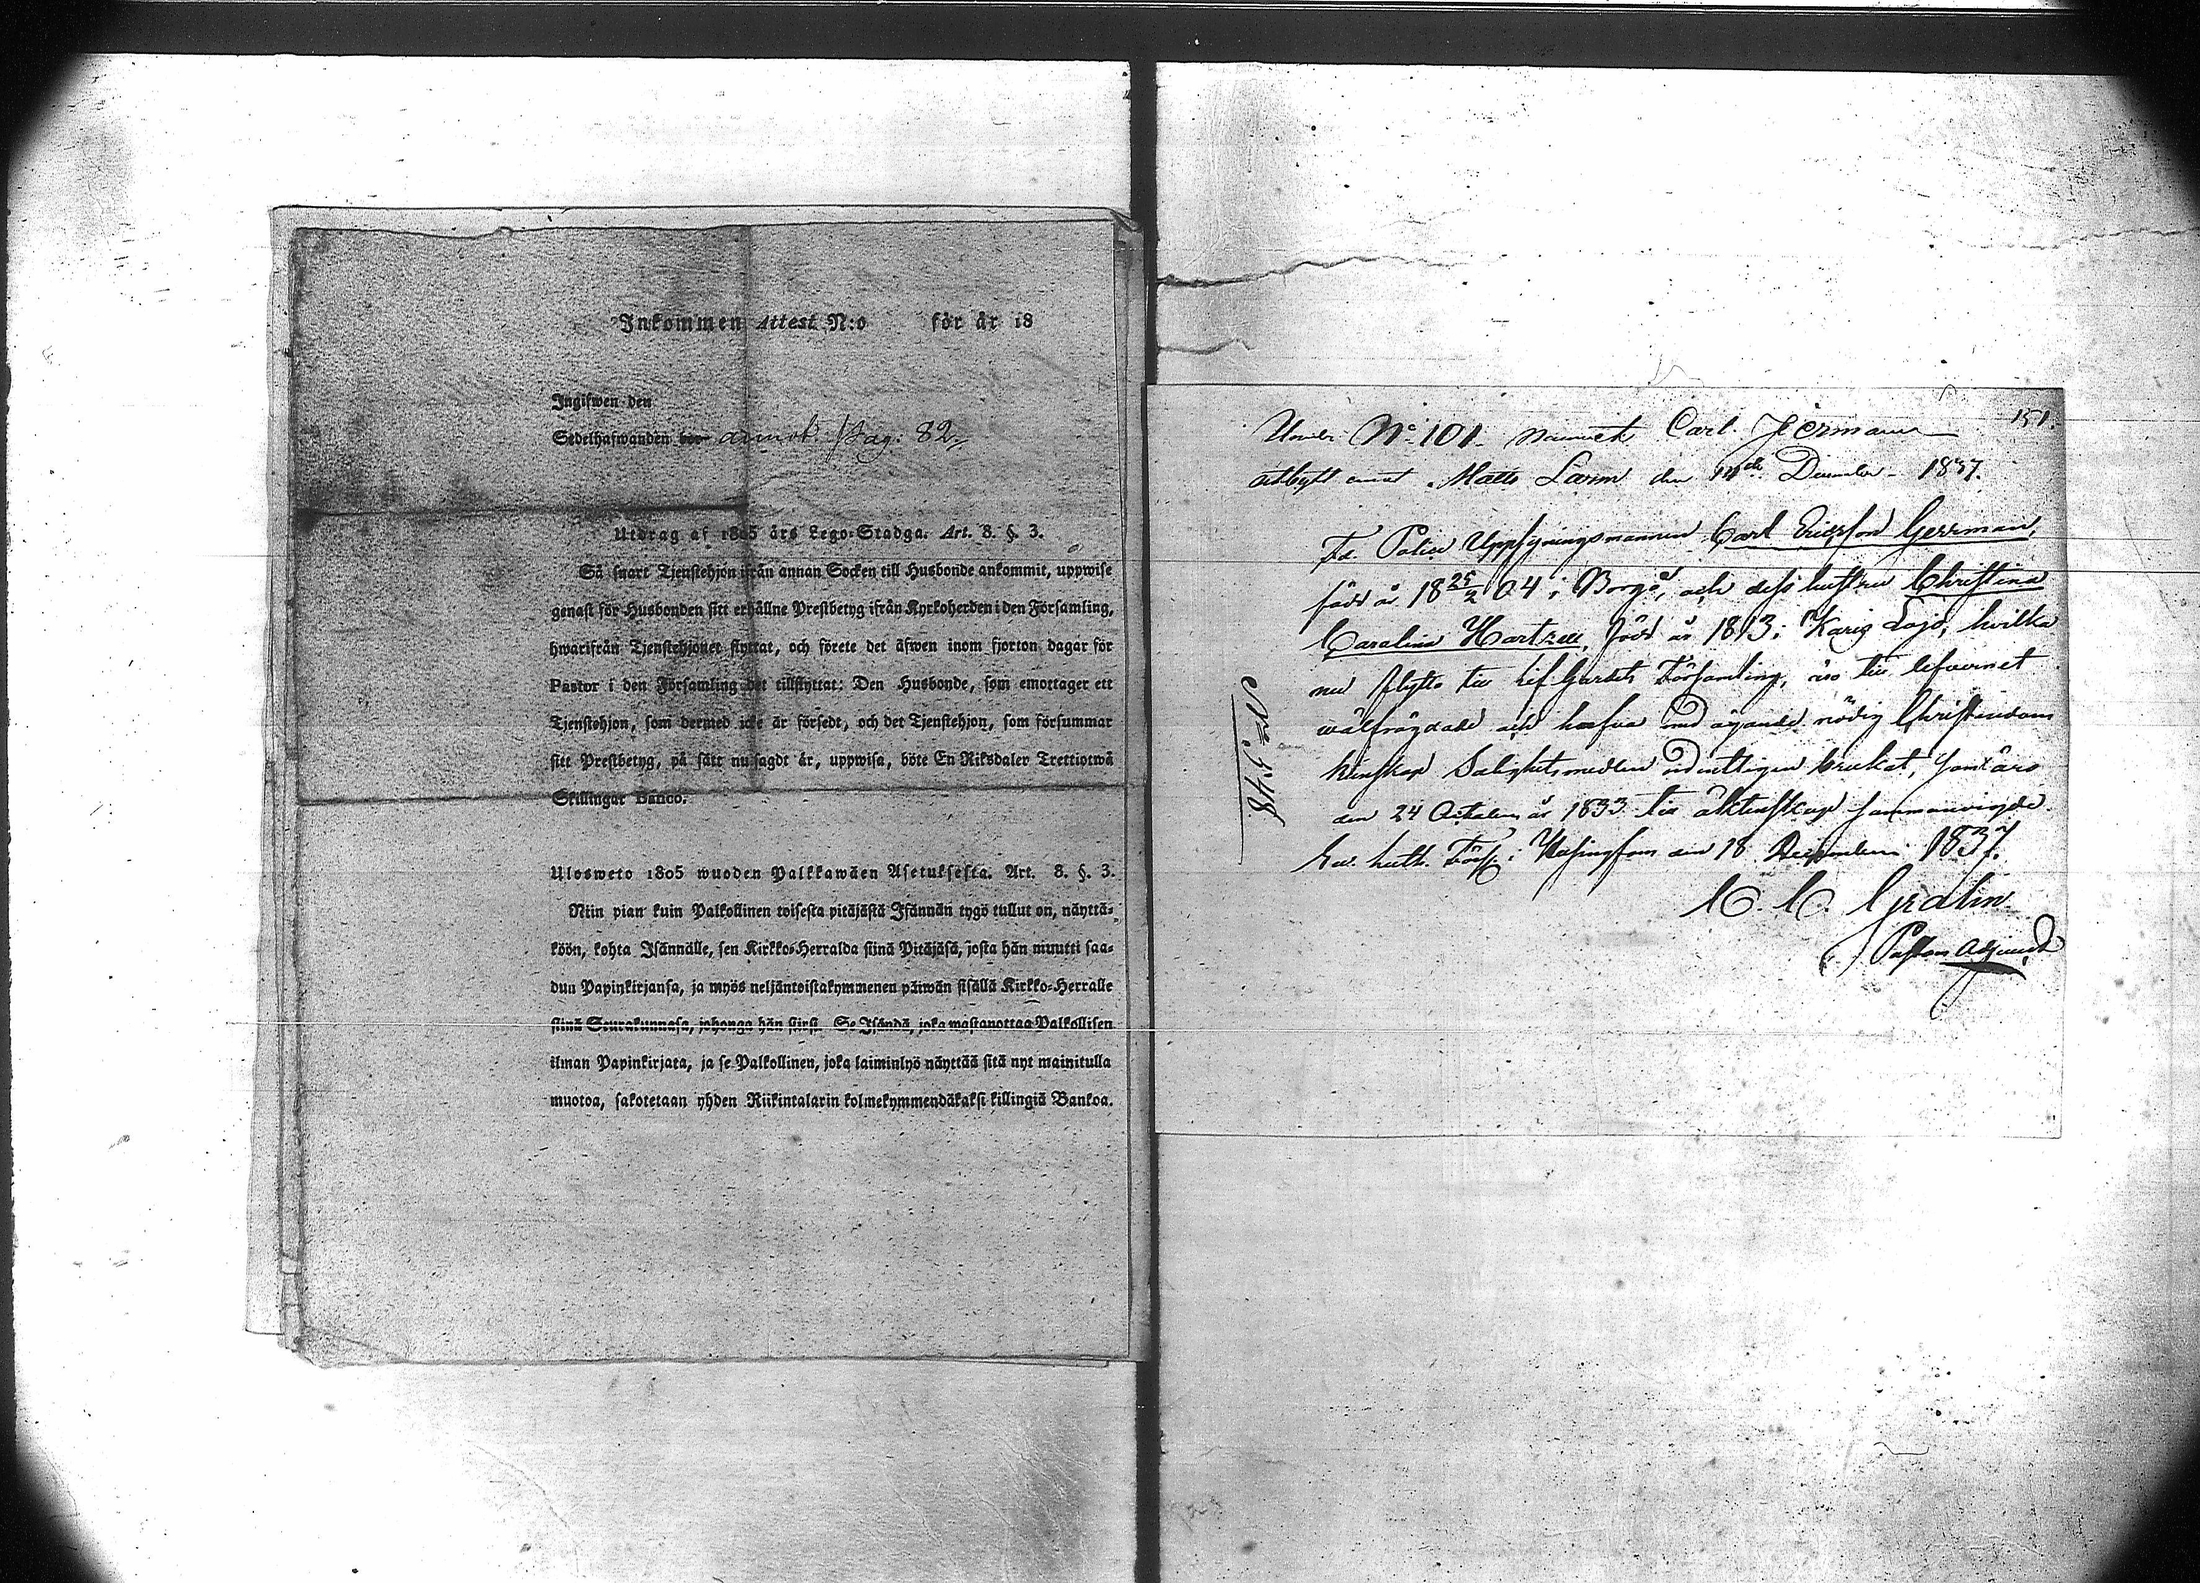 Inkommen Attest N:o för år 18
Ingifwen den
Sedelhafwanden bor annot. Pag. 82.
Utdrag af 1805 års Lego-Stadga. Art. 8. §. 3.
Så snart Tjenstehjon ifrån annan Socken till Husbonde ankommit, uppwise
genast för Husbonden sitt erhållne Prestbetyg ifrån Kyrkoherden i den Församling,
hwarifrån Tjenstehjonet flyttat, och förete det äfwen inom fjorton dagar för
Pastor i den Församling det tillflyttat: Den Husbonde, som emottager ett
Tjenstehjon, som dermed icke är försedt, och det Tjenstehjon, som försummar
sitt Prestbetyg, på sätt nu sagdt är, uppwisa, böte En Riksdaler Trettiotwå
Skillingar Banco.
Ulosweto 1805 wuoden Palkkawäen Asetuksesta. Art. 8. §. 3.
Niin pian kuin Palkollinen toisesta pitäjästä Isännän tygö tullut on, näyttä-
köön, kohta Isännälle, sen Kirkko-Herralda siinä Pitäjäsä, josta hän muutti saa-
dun Papinkirjansa, ja myös neljäntoistakymmenen päiwän sisällä Kirkko-Herralle
siinä Seurakunnasa, johonga hän siirsi. Se Isändä, joka wastanottaa Palkollisen
ilman Papinkirjata, ja se Palkollinen, joka laiminlyö näyttää sitä nyt mainitulla
muotoa, sakotetaan yhden Riikintalarin kolmekymmendäkaksi killingiä Bankoa.
151.
Under No 101. namnet Carl Jerman
utbytt emot Matts Larm den 14de December 1837.
Fd. Police Uppsyningsmannen Carl Ericsson Gerrman,
född år 18 25/2 04 i Borgå, och dess hustru Christina
Carolina Hartzell, född år 1813 i Karis Lojo, hvilka
nu flytta till Lif Gardets Församling, äro till lefvernet
wälfrägdade och hafva med ägande nödig Christendoms
kunskap Salighetsmedlen ordentligen brukat, samt äro
den 24 October år 1833 till äktenskap sammanvigde.
Ev. Luth. Förs. i Helsingfors den 18 December 1837.
C. C. Grahn
Pastors Adjunct
No 548